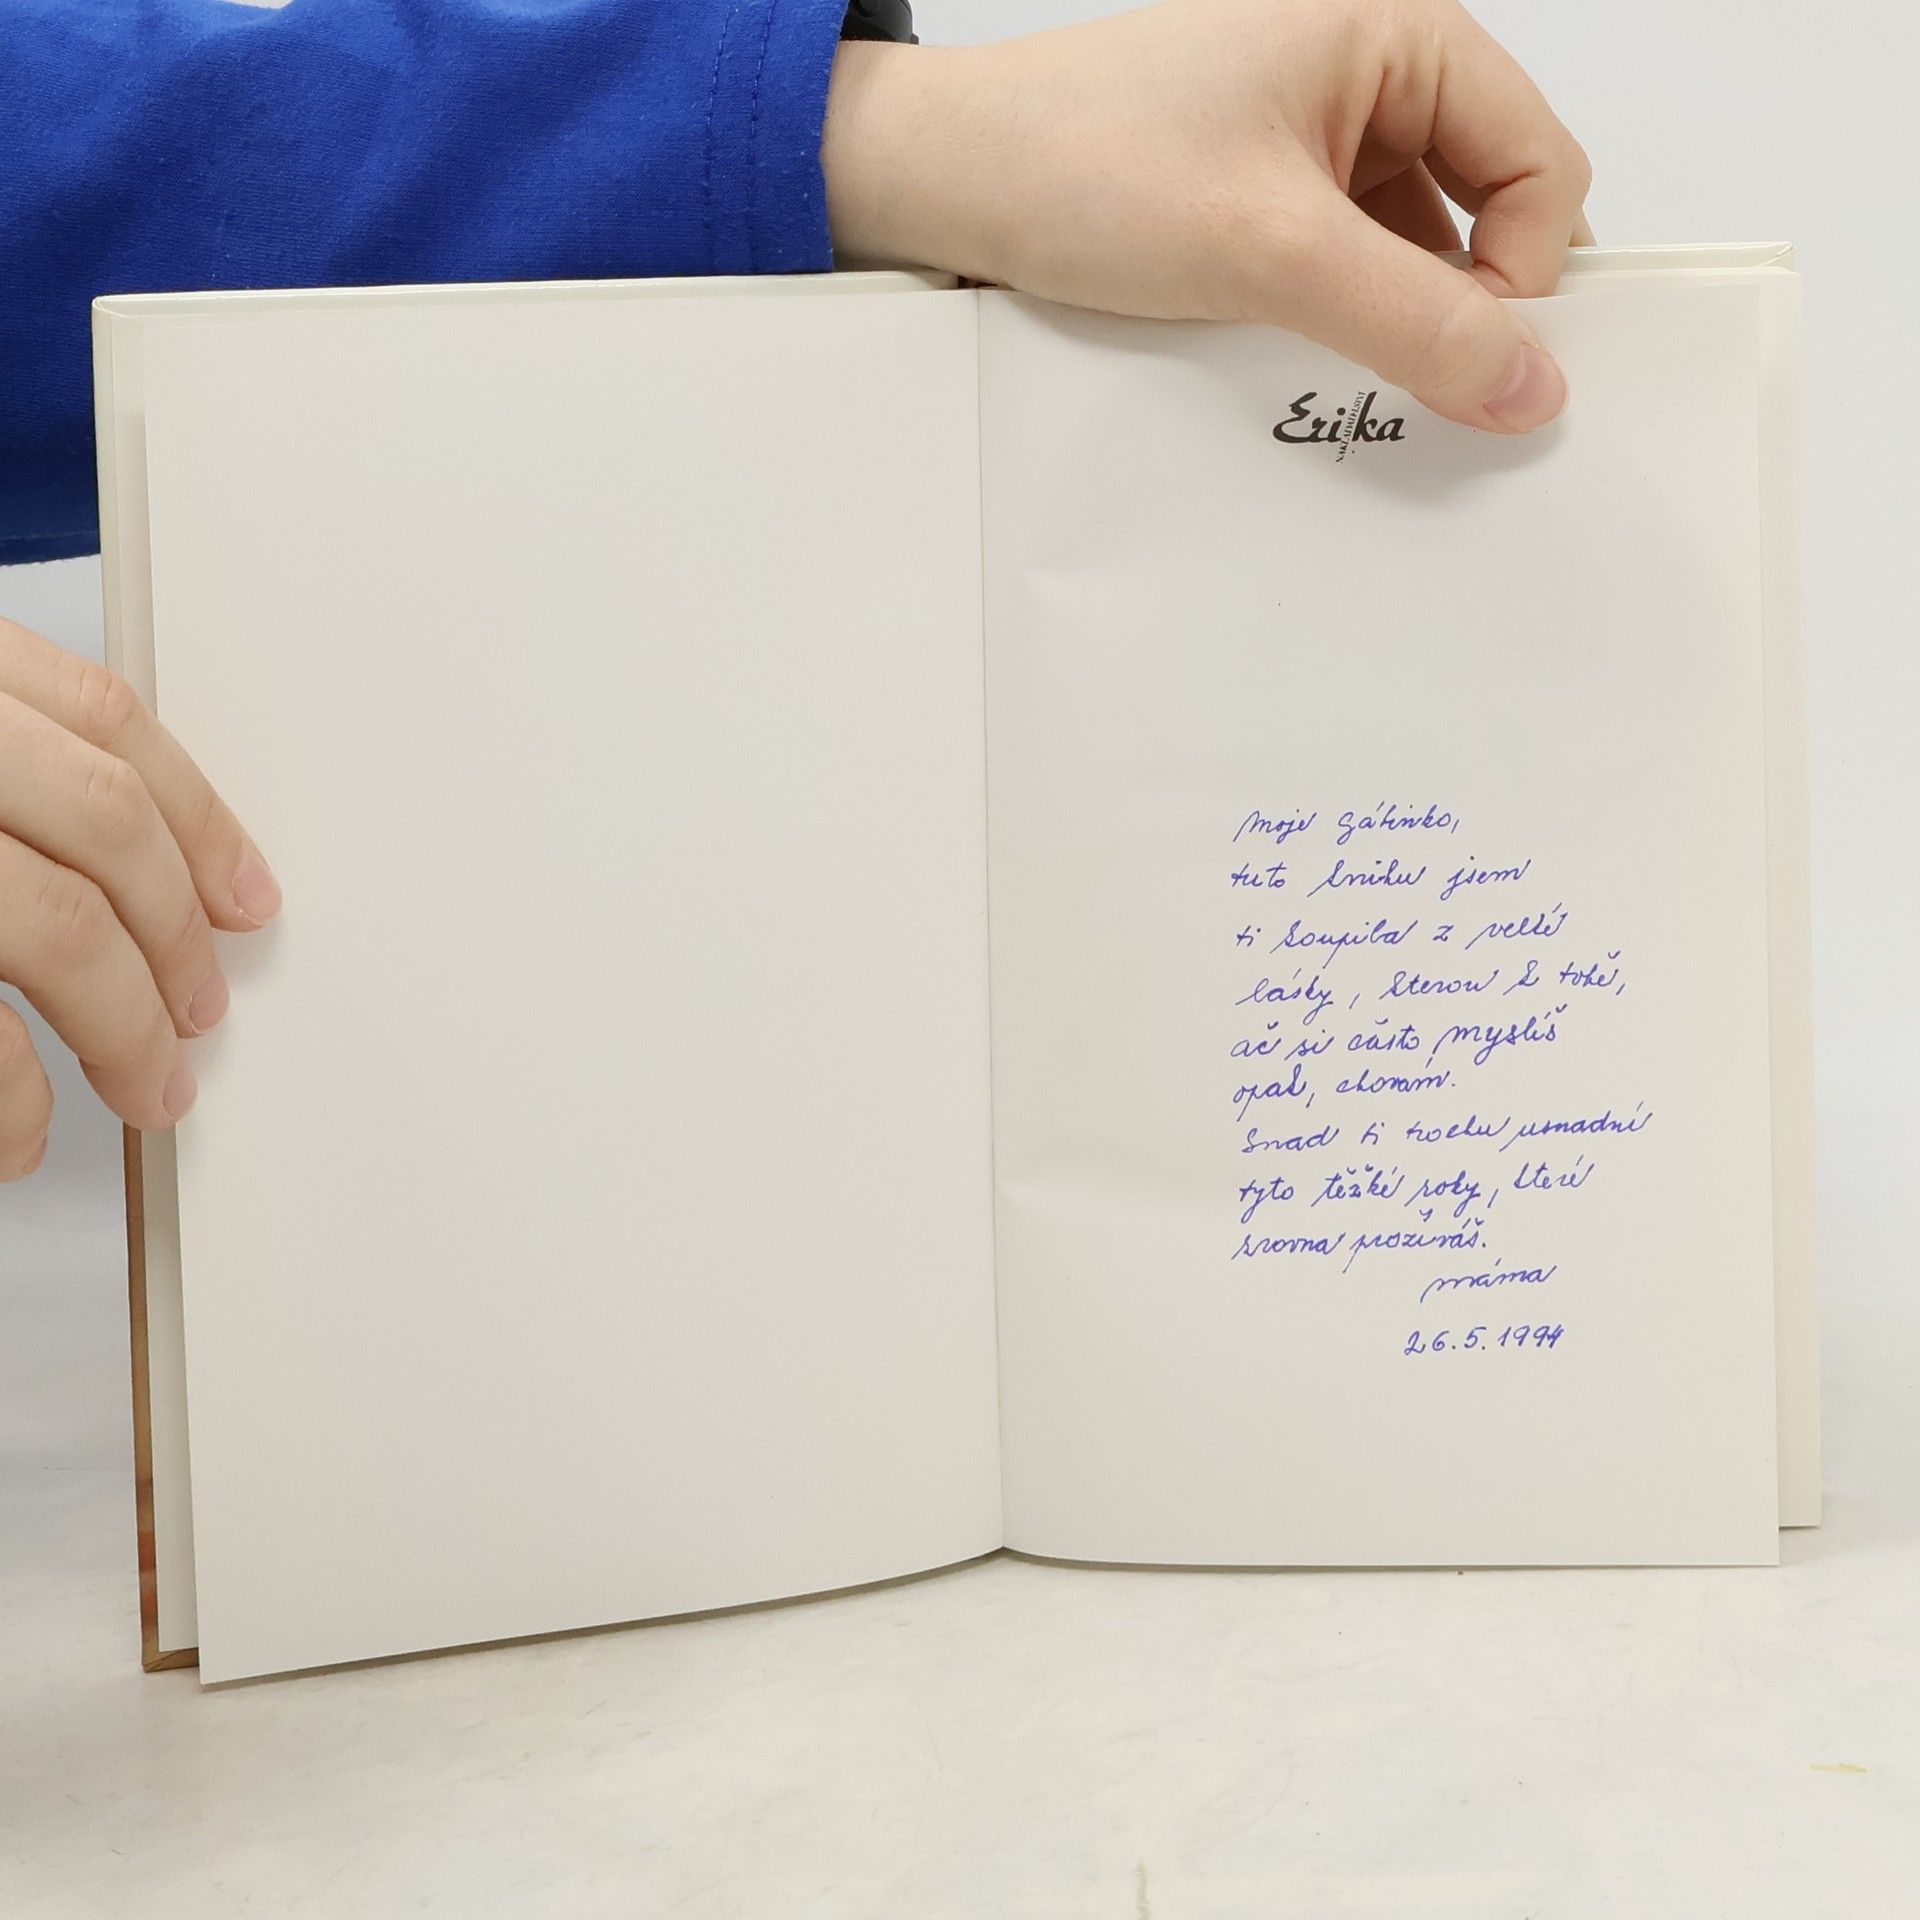 Erika
NAKLADATELSTVÍ
Moje gábinko,
tuto knihu jsem
ti koupila z velké
lásky, kterou k tobě,
ač si často myslíš
opak, chovám.
Snad ti trochu usnadní
tyto těžké roky, které
zrovna prožíváš.
máma
26.5.1994